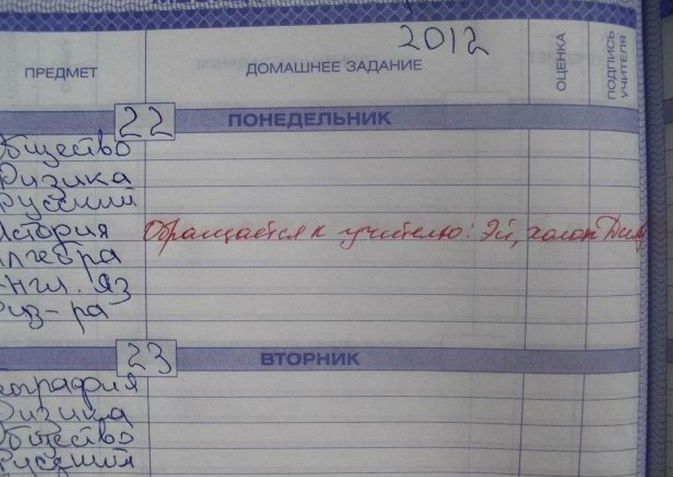 2012
ПРЕДМЕТ
ДОМАШНЕЕ ЗАДАНИЕ
ОЦЕНКА
ПОДПИСЬ УЧИТЕЛЯ
22 ПОНЕДЕЛЬНИК
бщество
Физика
Русский
История Обращается к учителю: Эй, холоп
лгебра
нгл. яз
Физ-ра
23 ВТОРНИК
еография
Физика
Общество
Русский